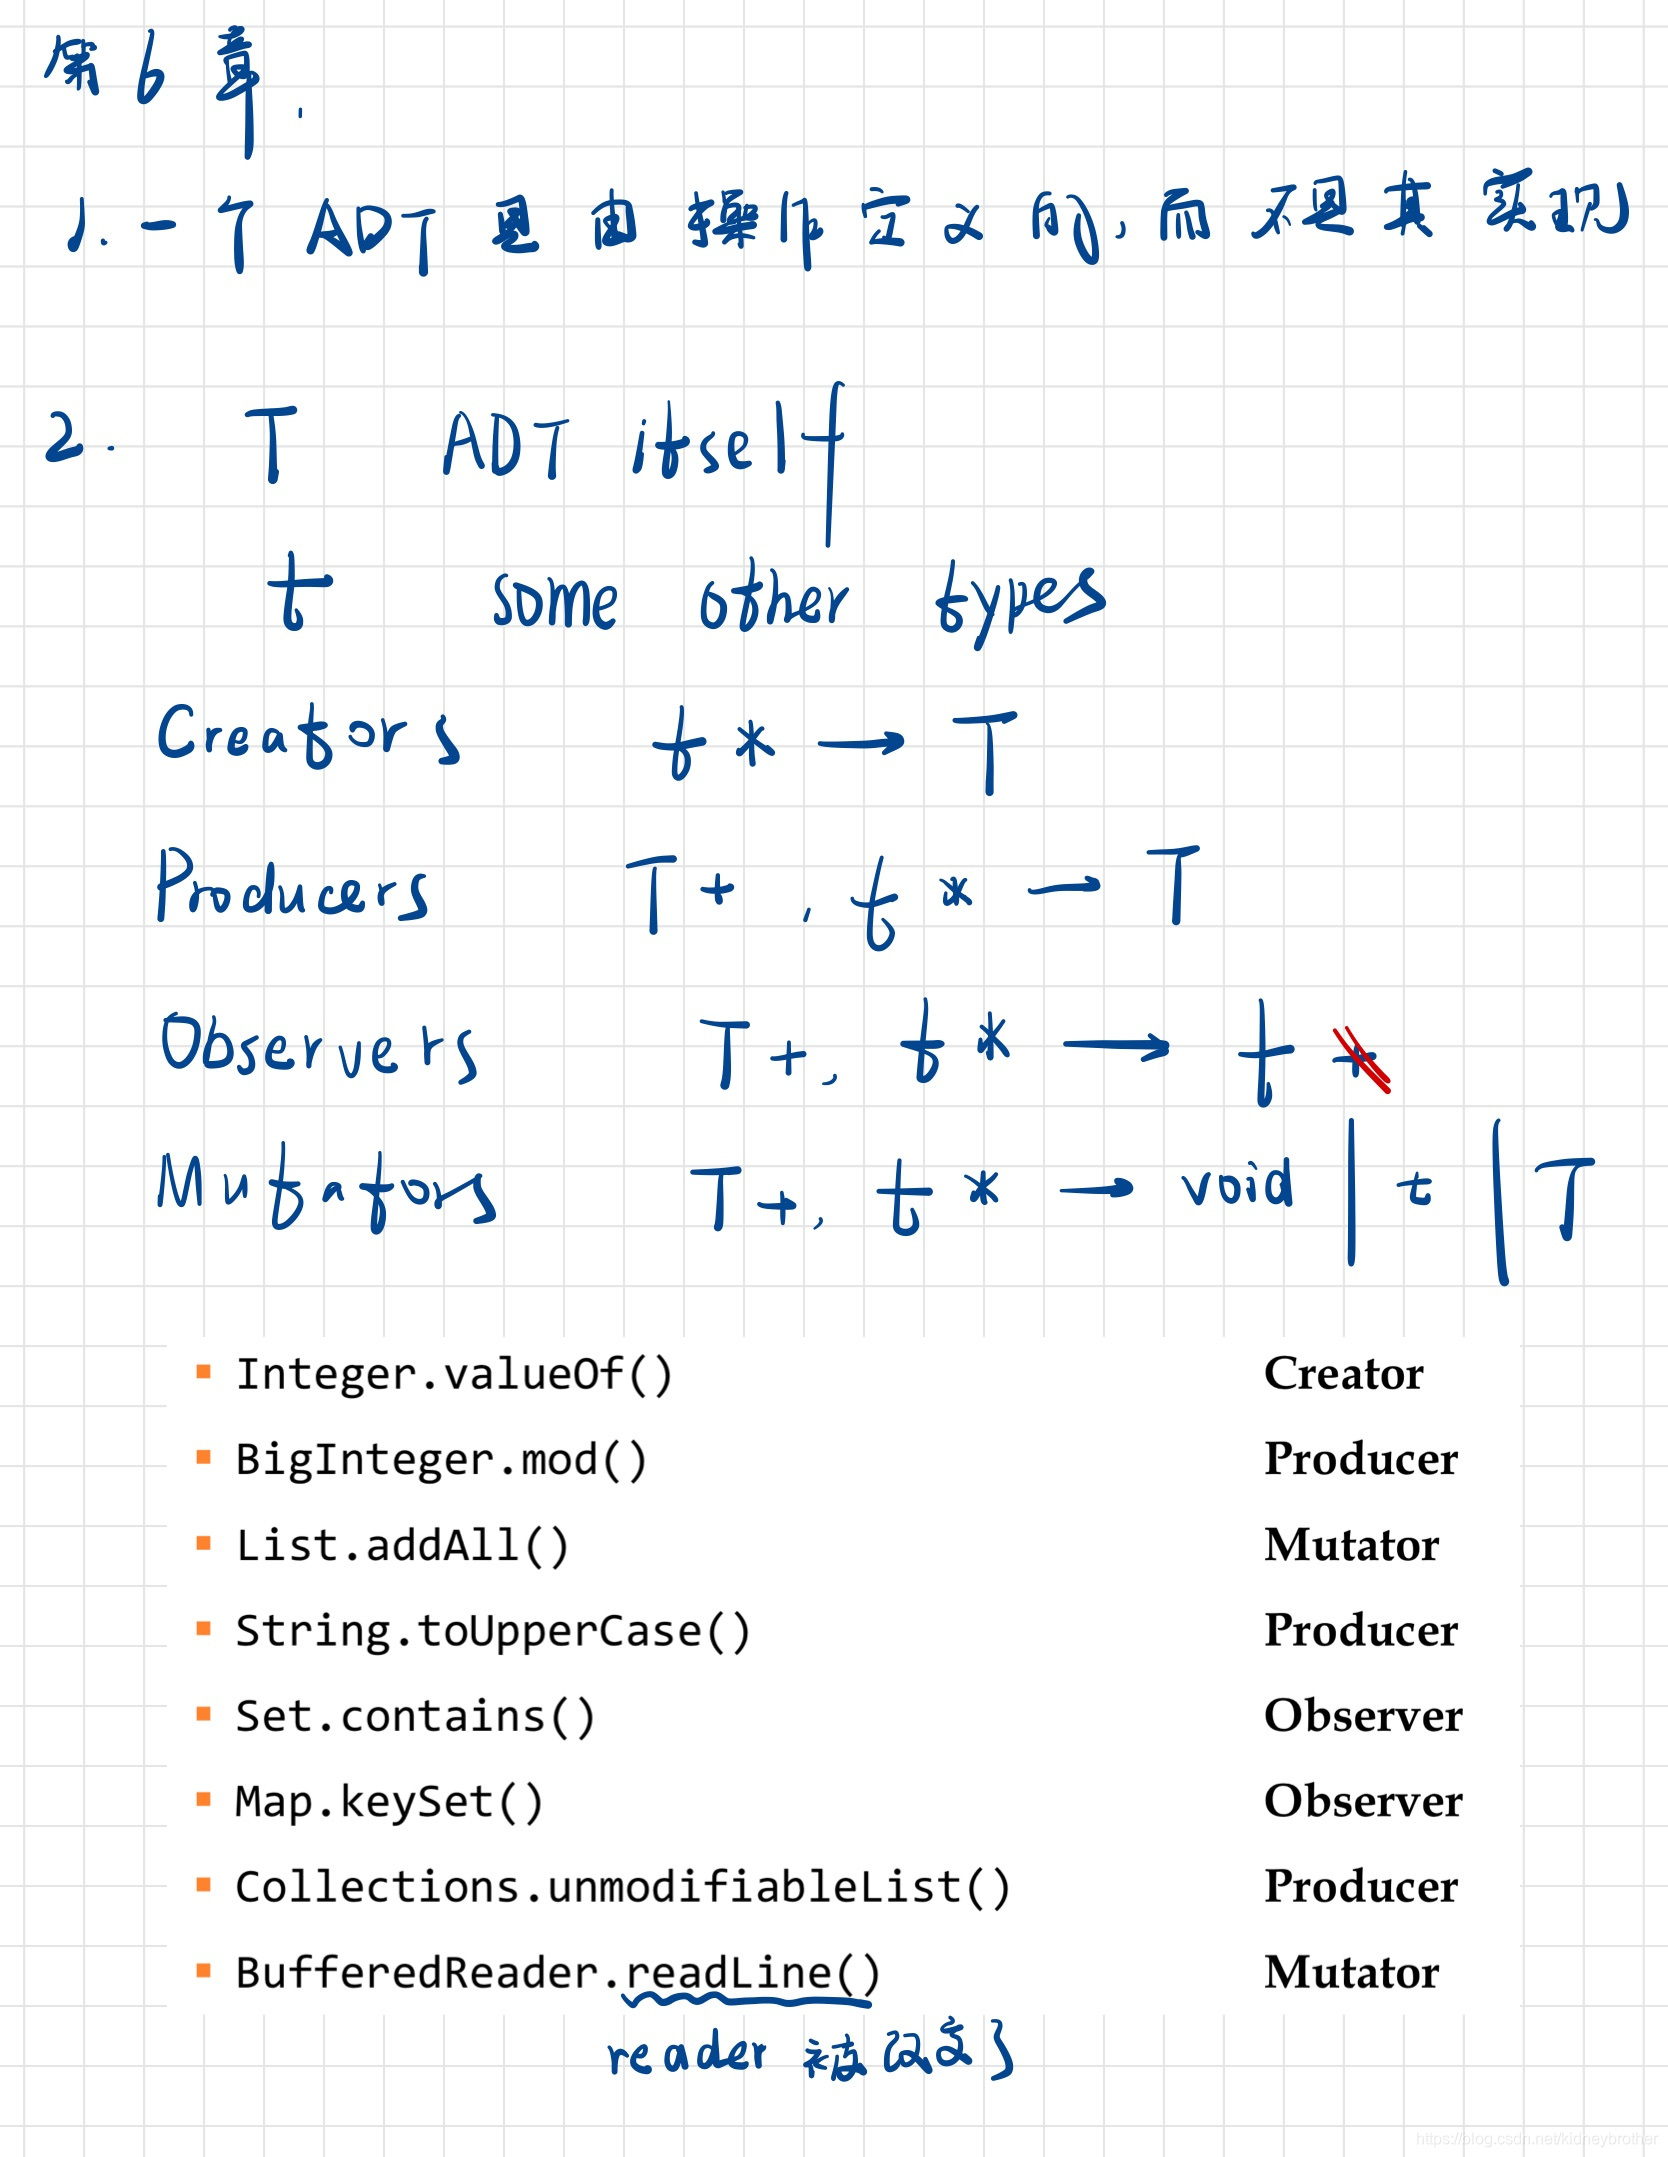 第6章.
1. 一个ADT是由操作定义的,而不是其实现
2. T ADT itself
t some other types
Creators t* → T
Producers T+, t* → T
Observers T+, t* → t
Mutators T+, t* → void | t | T
▪ Integer.valueOf() Creator
▪ BigInteger.mod() Producer
▪ List.addAll() Mutator
▪ String.toUpperCase() Producer
▪ Set.contains() Observer
▪ Map.keySet() Observer
▪ Collections.unmodifiableList() Producer
▪ BufferedReader.readLine() Mutator
reader 被改变了
https://blog.csdn.net/kidneybrother